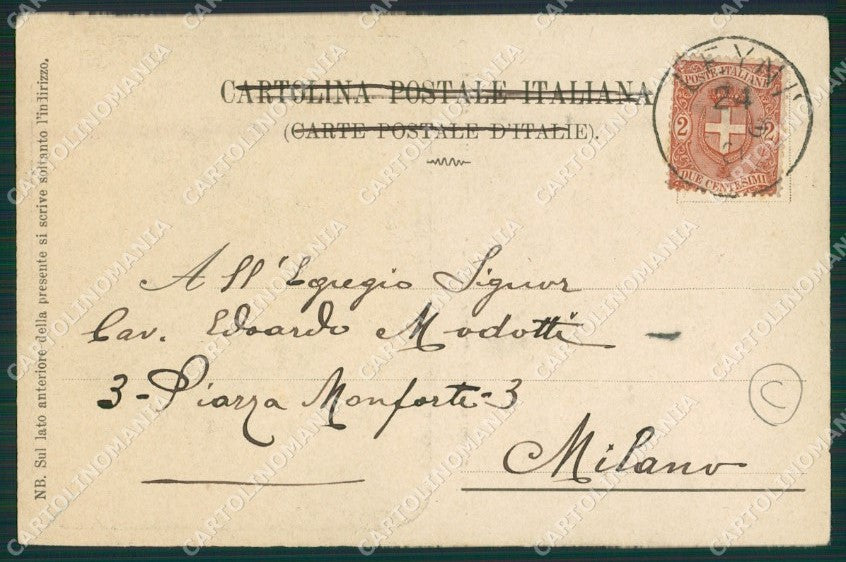 CARTOLINA POSTALE ITALIANA
(CARTE POSTALE D'ITALIE).
POSTE ITALIANE
2 2
DUE CENTESIMI
LEYNI
24
All'Egregio Signor
Cav. Edoardo Modotti
3-Piazza Monforte-3
Milano
C
NB. Sul lato anteriore della presente si scrive soltanto l'indirizzo.
CARTOLINOMANIA